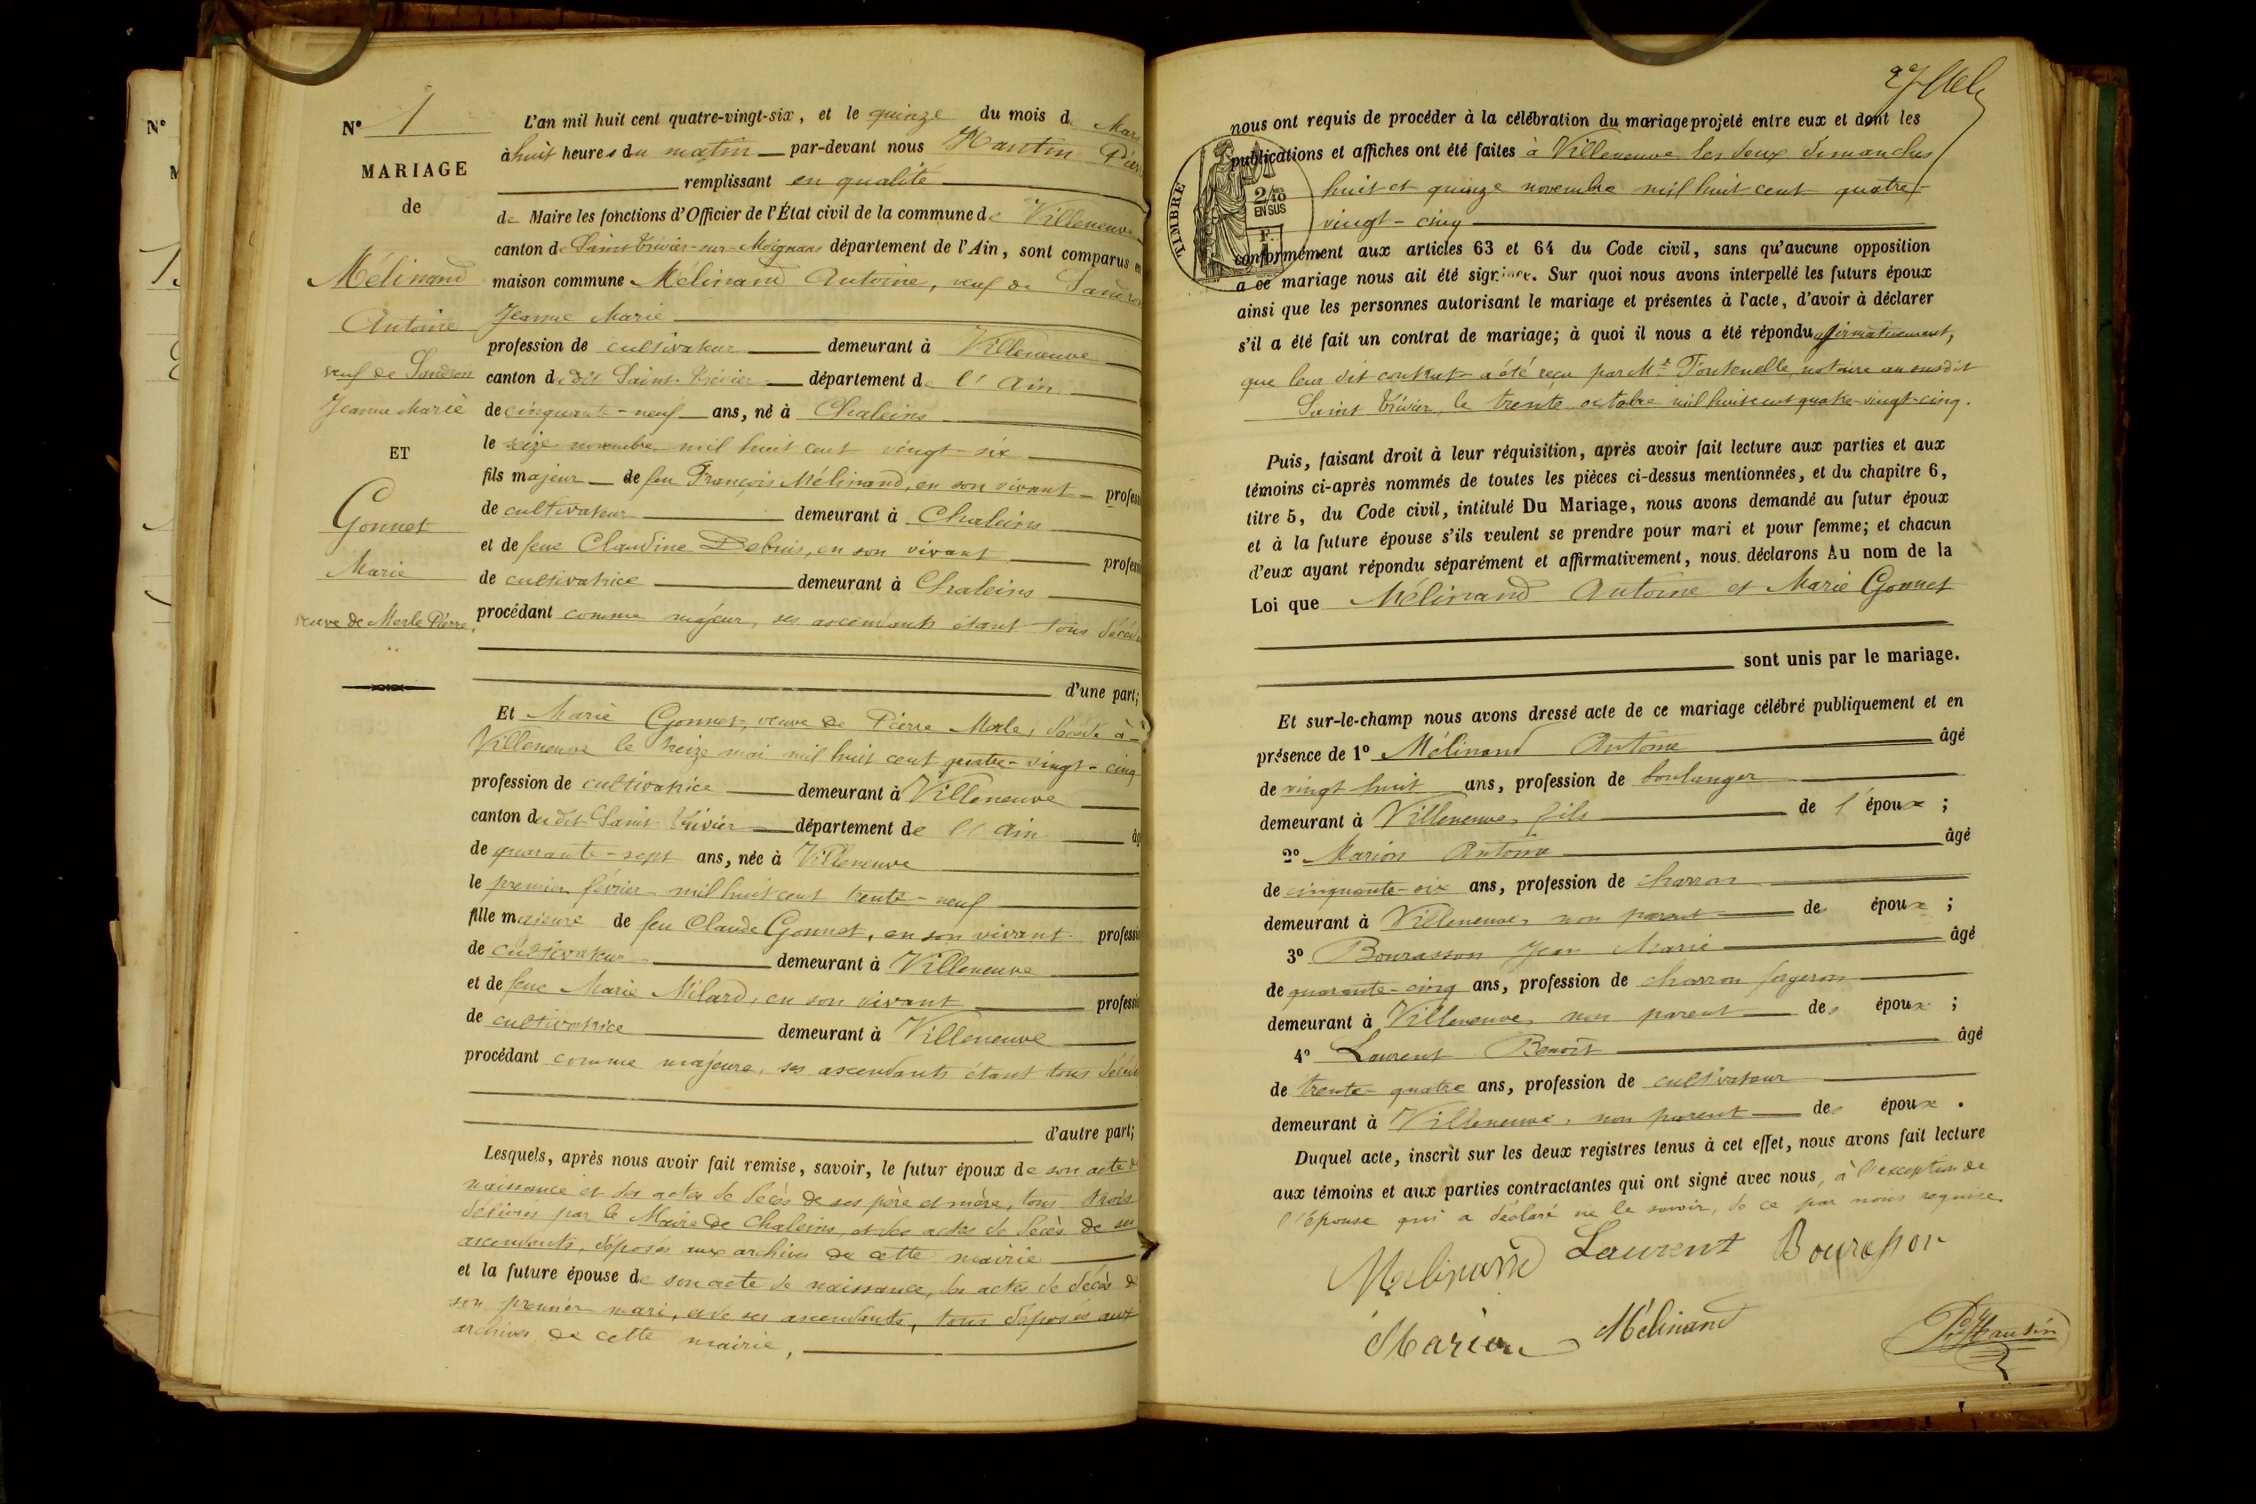 N° 1
MARIAGE
de
Mélinand
Antoine
veuf de Sandron
Jeanne Marie
ET
Gonnet
Marie
veuve de Merle Pierre
L'an mil huit cent quatre-vingt-six, et le quinze du mois de Mars
à huit heures du matin par-devant nous Hantin Pier
remplissant en qualité
de Maire les fonctions d'Officier de l'État civil de la commune de Villeneuve
canton de Saint Trivier-sur-Moignans département de l'Ain, sont comparus en
maison commune Mélinand Antoine, veuf de Sandron
Jeanne Marie
profession de cultivateur demeurant à Villeneuve
canton dudit Saint Trivier département de l'Ain
de cinquante-neuf ans, né à Chaleins
le seize novembre mil huit cent vingt six
fils majeur de feu François Mélinand, en son vivant profess
de cultivateur demeurant à Chaleins
et de feue Claudine Debruis, en son vivant profess
de cultivatrice demeurant à Chaleins
procédant comme majeur, ses ascendants étant tous décédés
d'une part;
Et Marie Gonnet, veuve de Pierre Merle, décédé à
Villeneuve le treize mai mil huit cent quatre-vingt-cinq
profession de cultivatrice demeurant à Villeneuve
canton dudit Saint Trivier département de l'Ain âg
de quarante-sept ans, née à Villeneuve
le premier février mil huit cent trente-neuf
fille majeure de feu Claude Gonnet, en son vivant professi
de cultivateur demeurant à Villeneuve
et de feue Marie Milard, en son vivant professi
de cultivatrice demeurant à Villeneuve
procédant comme majeure, ses ascendants étant tous décédés
d'autre part;
Lesquels, après nous avoir fait remise, savoir, le futur époux de son acte de
naissance et des actes de décès de ses père et mère, tous trois
délivrés par le Maire de Chaleins, et des actes de décès de ses
ascendants, déposés aux archives de cette mairie
et la future épouse de son acte de naissance, des actes de décès de
son premier mari, et de ses ascendants, tous déposés aux
archives de cette mairie,
nous ont requis de procéder à la célébration du mariage projeté entre eux et dont les
publications et affiches ont été faites à Villeneuve les deux dimanches
huit et quinze novembre mil huit cent quatre-
vingt-cinq
TIMBRE
2/10
EN SUS
F.
conformément aux articles 63 et 64 du Code civil, sans qu'aucune opposition
à ce mariage nous ait été signifiée. Sur quoi nous avons interpellé les futurs époux
ainsi que les personnes autorisant le mariage et présentes à l'acte, d'avoir à déclarer
s'il a été fait un contrat de mariage; à quoi il nous a été répondu affirmativement,
que leur dit contrat a été reçu par Me Fontenelle, notaire au susdit
Saint Trivier, le trente octobre mil huit cent quatre-vingt-cinq.
Puis, faisant droit à leur réquisition, après avoir fait lecture aux parties et aux
témoins ci-après nommés de toutes les pièces ci-dessus mentionnées, et du chapitre 6,
titre 5, du Code civil, intitulé Du Mariage, nous avons demandé au futur époux
et à la future épouse s'ils veulent se prendre pour mari et pour femme; et chacun
d'eux ayant répondu séparément et affirmativement, nous déclarons Au nom de la
Loi que Mélinand Antoine et Marie Gonnet
sont unis par le mariage.
Et sur-le-champ nous avons dressé acte de ce mariage célébré publiquement et en
présence de 1° Mélinand Antoine âgé
de vingt huit ans, profession de boulanger
demeurant à Villeneuve, fils de l'époux ;
2° Marion Antoine âgé
de cinquante-six ans, profession de charron
demeurant à Villeneuve, non parent des époux ;
3° Bourasson Jean Marie âgé
de quarante-cinq ans, profession de charron forgeron
demeurant à Villeneuve, non parent des époux ;
4° Laurent Benoît âgé
de trente-quatre ans, profession de cultivateur
demeurant à Villeneuve, non parent des époux .
Duquel acte, inscrit sur les deux registres tenus à cet effet, nous avons fait lecture
aux témoins et aux parties contractantes qui ont signé avec nous, à l'exception de
l'épouse qui a déclaré ne le savoir, de ce par nous requise.
Mélinand Laurent Bourasson
Marion Mélinand Hantin